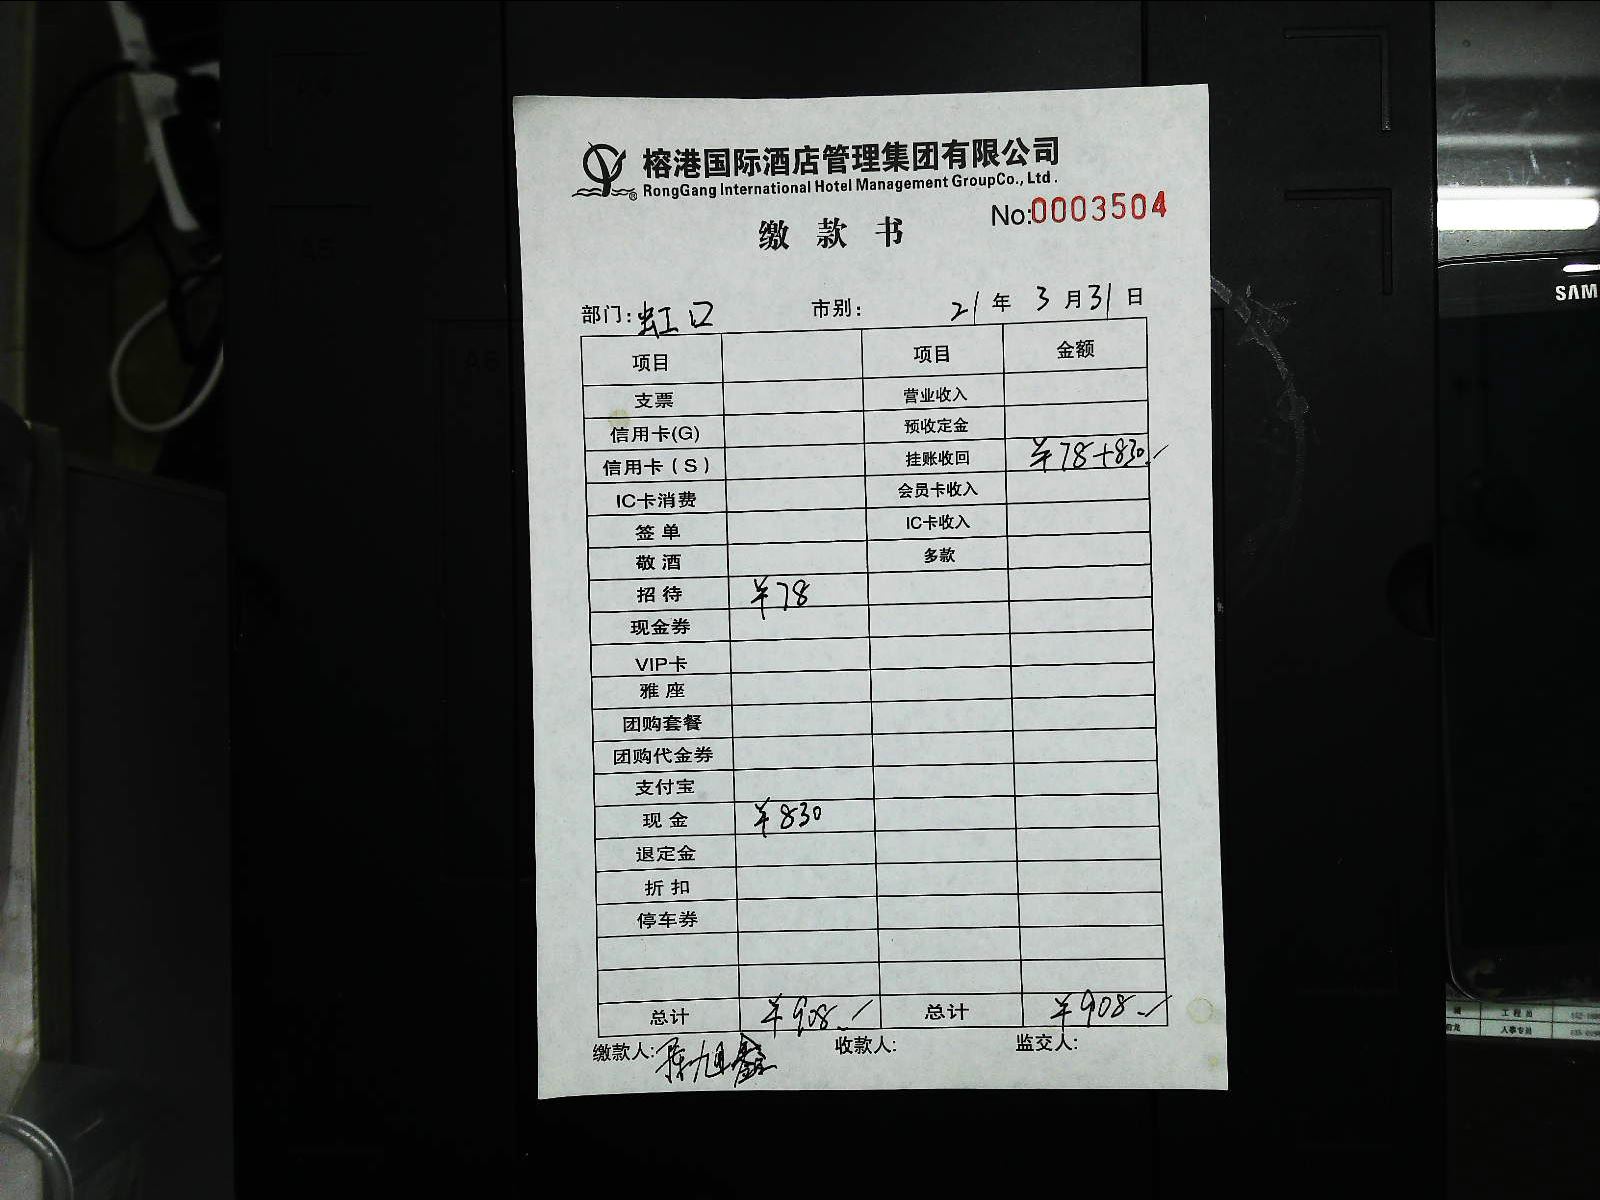 榕港国际酒店管理集团有限公司
RongGang International Hotel Management GroupCo., Ltd.
No:0003504
缴款书
部门:虹口 市别: 21年3月31日
项目 项目 金额
支票 营业收入
信用卡(G) 预收定金
信用卡(S) 挂账收回 ¥78+830.
IC卡消费 会员卡收入
签单 IC卡收入
敬酒 多款
招待 ¥78
现金券
VIP卡
雅座
团购套餐
团购代金券
支付宝
现金 ¥830
退定金
折扣
停车券
总计 ¥908.- 总计 ¥908.-
缴款人:陈旭鑫 收款人: 监交人:
SAM
A5
A6
工程员
人事专员